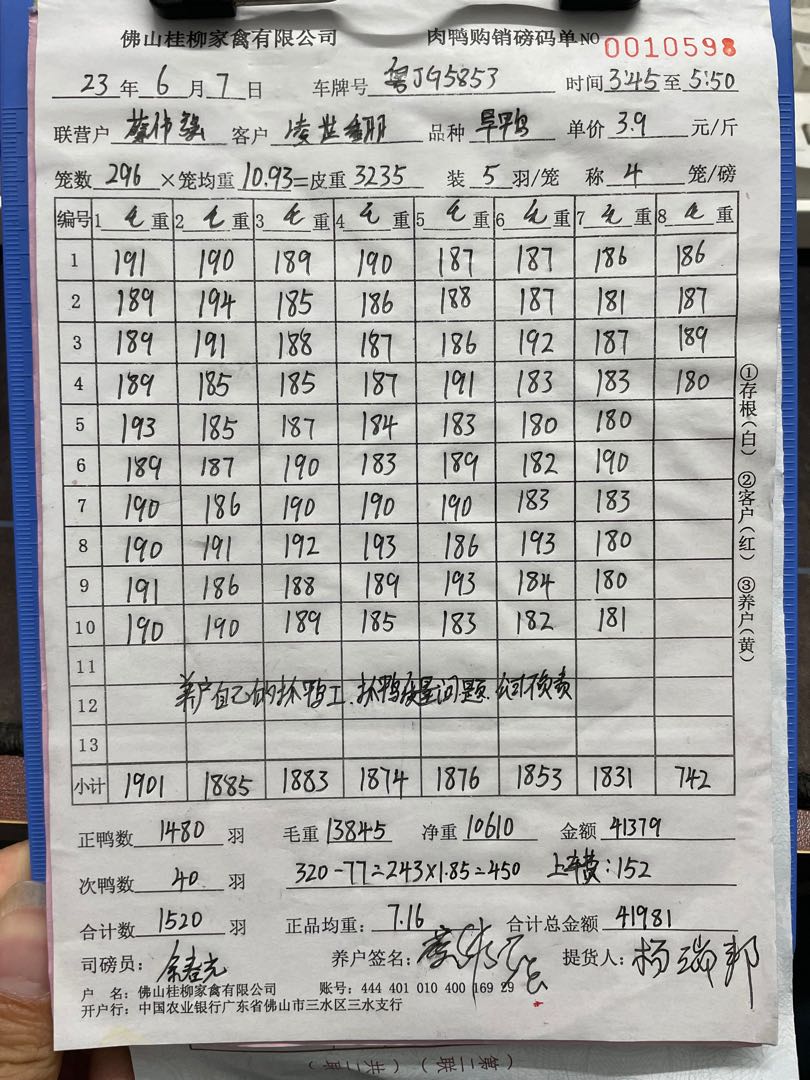 佛山桂柳家禽有限公司 肉鸭购销磅码单 NO 0010598
23 年 6 月 7 日 车牌号 粤JG5853 时间 3:45 至 5:50
联营户 客户 品种 旱鸭 单价 3.9 元/斤
笼数 296 ×笼均重 10.93 =皮重 3235 装 5 羽/笼 称 4 笼/磅
编号 1 毛 重 2 毛 重 3 毛 重 4 毛 重 5 毛 重 6 毛 重 7 毛 重 8 毛 重
1 191 190 189 190 187 187 186 186
2 189 194 185 186 188 187 181 187
3 189 191 188 187 186 192 187 189
4 189 185 185 187 191 183 183 180
5 193 185 187 184 183 180 180
6 189 187 190 183 189 182 190
7 190 186 190 190 190 183 183
8 190 191 192 193 186 193 180
9 191 186 188 189 193 184 180
10 190 190 189 185 183 182 181
11
12 养户自己的抓鸭工、抓鸭质量问题、公司不负责
13
小计 1901 1885 1883 1874 1876 1853 1831 742
正鸭数 1480 羽 毛重 13845 净重 10610 金额 41379
次鸭数 40 羽 320-77=243×1.85=450 上车费:152
合计数 1520 羽 正品均重: 7.16 合计总金额 41981
司磅员: 养户签名: 提货人: 杨瑞邦
户 名: 佛山桂柳家禽有限公司 账号: 444 401 010 400 169 29
开户行: 中国农业银行广东省佛山市三水区三水支行
①存根(白) ②客户(红) ③养户(黄)
(第二联) (共二联)